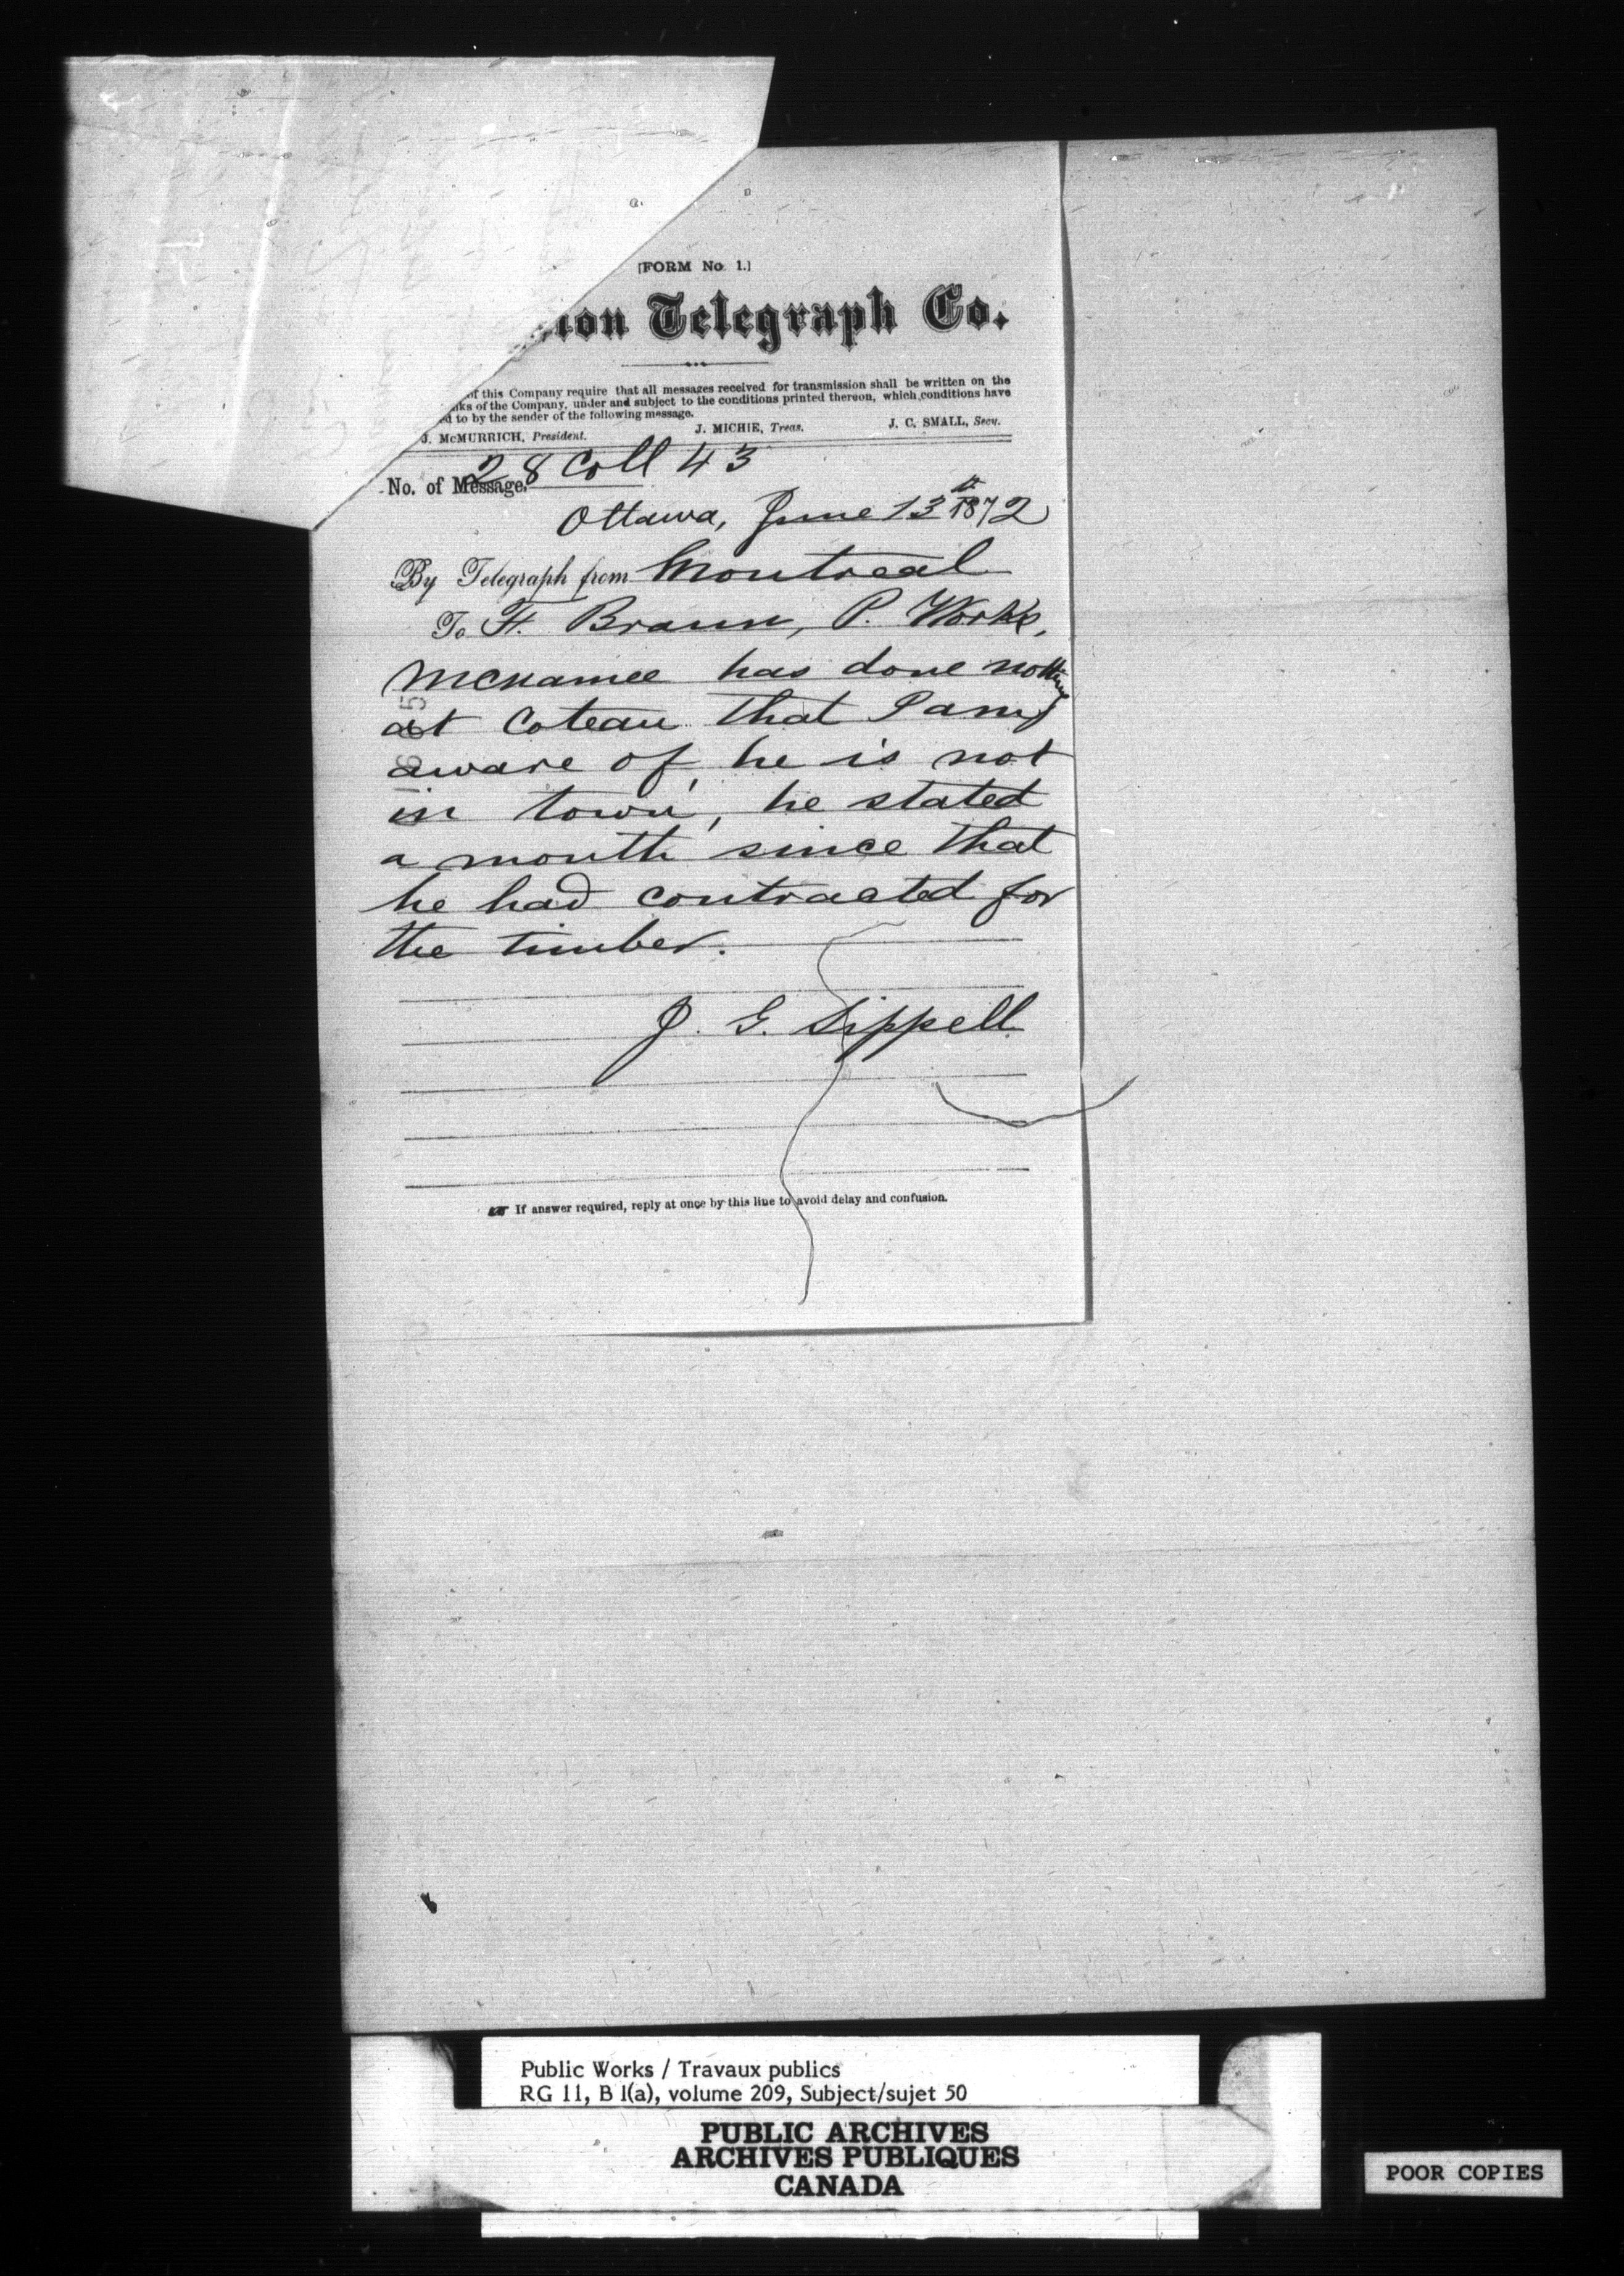 [FORM No. 1.]
Telegraph Co.
of this Company require that all messages received for transmission shall be written on the
of the Company, under and subject to the conditions printed thereon, which conditions have
to by the sender of the following message.
J. McMURRICH, President. J. MICHIE, Treas. J. C. SMALL, Secy.
No. of Message, 28 Coll 43
Ottawa, June 13th 1872
By Telegraph from Montreal
To F. Braun, P. Works,
McNamee has done nothing
at Coteau that I am
aware of, he is not
in town, he stated
a month since that
he had contracted for
the timber.
J. G. Sippell
If answer required, reply at once by this line to avoid delay and confusion.
Public Works / Travaux publics
RG 11, B 1(a), volume 209, Subject/sujet 50
PUBLIC ARCHIVES
ARCHIVES PUBLIQUES
CANADA
POOR COPIES